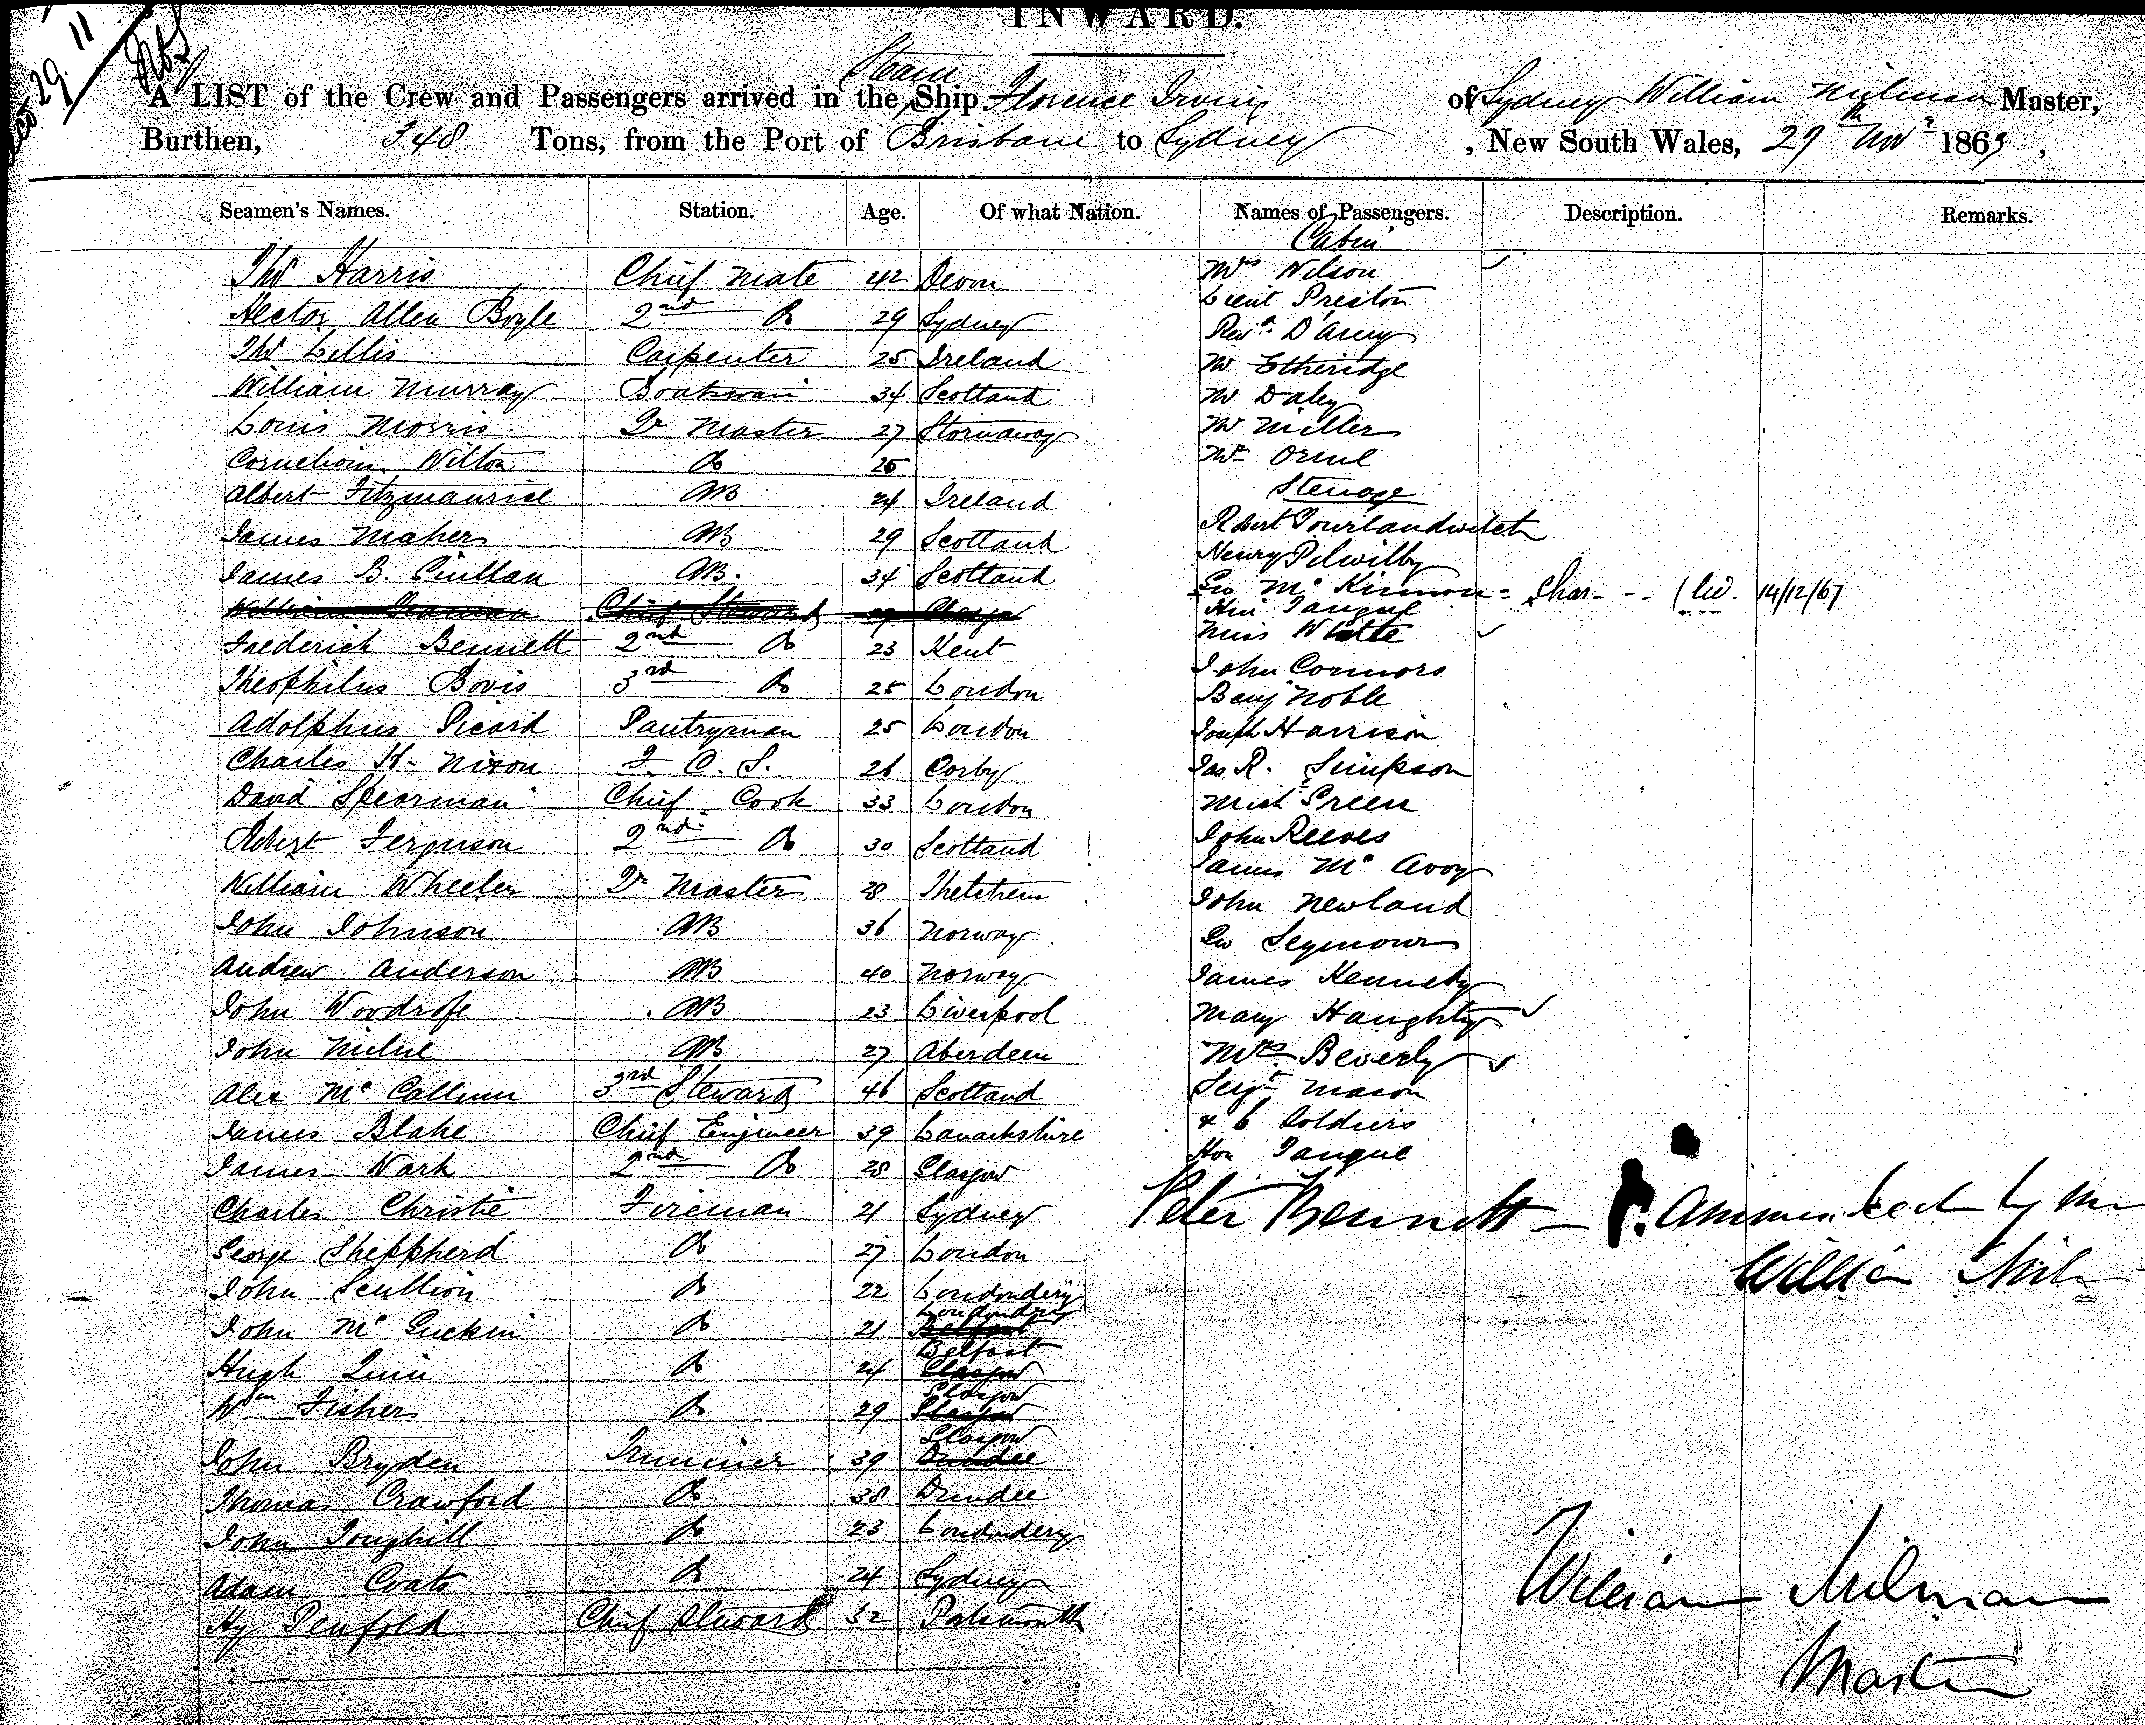 INWARD.
29 11
Steam
A LIST of the Crew and Passengers arrived in the Ship Florence Irving of Sydney William Milman Master,
Burthen, 348 Tons, from the Port of Brisbane to Sydney, New South Wales, 29th Novr 1865,
Seamen's Names. Station. Age. Of what Nation. Names of Passengers. Description. Remarks.
Cabin
Thos Harris Chief Mate 42 Devon Mrs Wilson
Lieut Preston
Hector Allen Boyle 2nd Do 29 Sydney Revd D'Arcy
Thos Lillis Carpenter 25 Ireland Mr Etheridge
William Murray Boatswain 34 Scotland Mr Daley
Louis Morris Qr Master 27 Stornaway Mr Miller
Wilton Do 25 Mr
Albert Fitzmaurice AB 24 Ireland Steerage
James Mahers AB 29 Scotland Robert
Henry
James B. AB. 34 Scotland Geo McKinnon - Char - - 14/12/67
Chief Steward
Miss White
Frederick Bennett 2nd Do 23 Kent John Connors
Theophilus Bovis 3rd Do 25 London Benj Noble
Adolphus Picard Pantryman 25 London Joseph Harrison
Charles H. Nixon F. C. S. 26 Corby Jas R. Simpson
David Spearman Chief Cook 33 London Michl Green
Robert Ferguson 2nd Do 30 Scotland John Reeves
James McAvoy
William Wheeler Qr Master 28 John Newland
John Johnson AB 36 Norway Geo Seymour
Andrew Anderson AB 40 Norway James Kennedy
John Woodrofe AB 23 Liverpool Mary Haughty
John Milne AB 27 Aberdeen Mrs Beverly
Alex McCallum 3rd Steward 46 Scotland Sergt Mason
James Blake Chief Engineer 39 Lanarkshire & 6 Soldiers
James Wark 2nd Do 28 Glasgow Hon Tangue
Charles Christie Fireman 21 Sydney Peter Bennett - by me
George Sheppherd Do 27 London William Milman
John Scullion Do 22 Londondery
Londondery
John McGuckin Do 21 Belfast
Belfast
Hugh Quin Do 24 Glasgow
Glasgow
Wm Fisher Do 29 Glasgow
Glasgow
John Bryden Trimmer 39 Dundee
Thomas Crawford Do 38 Dundee
John Toughill Do 23 Londondery
Adam Coats Do 24 Sydney
Hy Penfold Chief Steward 32 Portsmouth
William Milman
Master